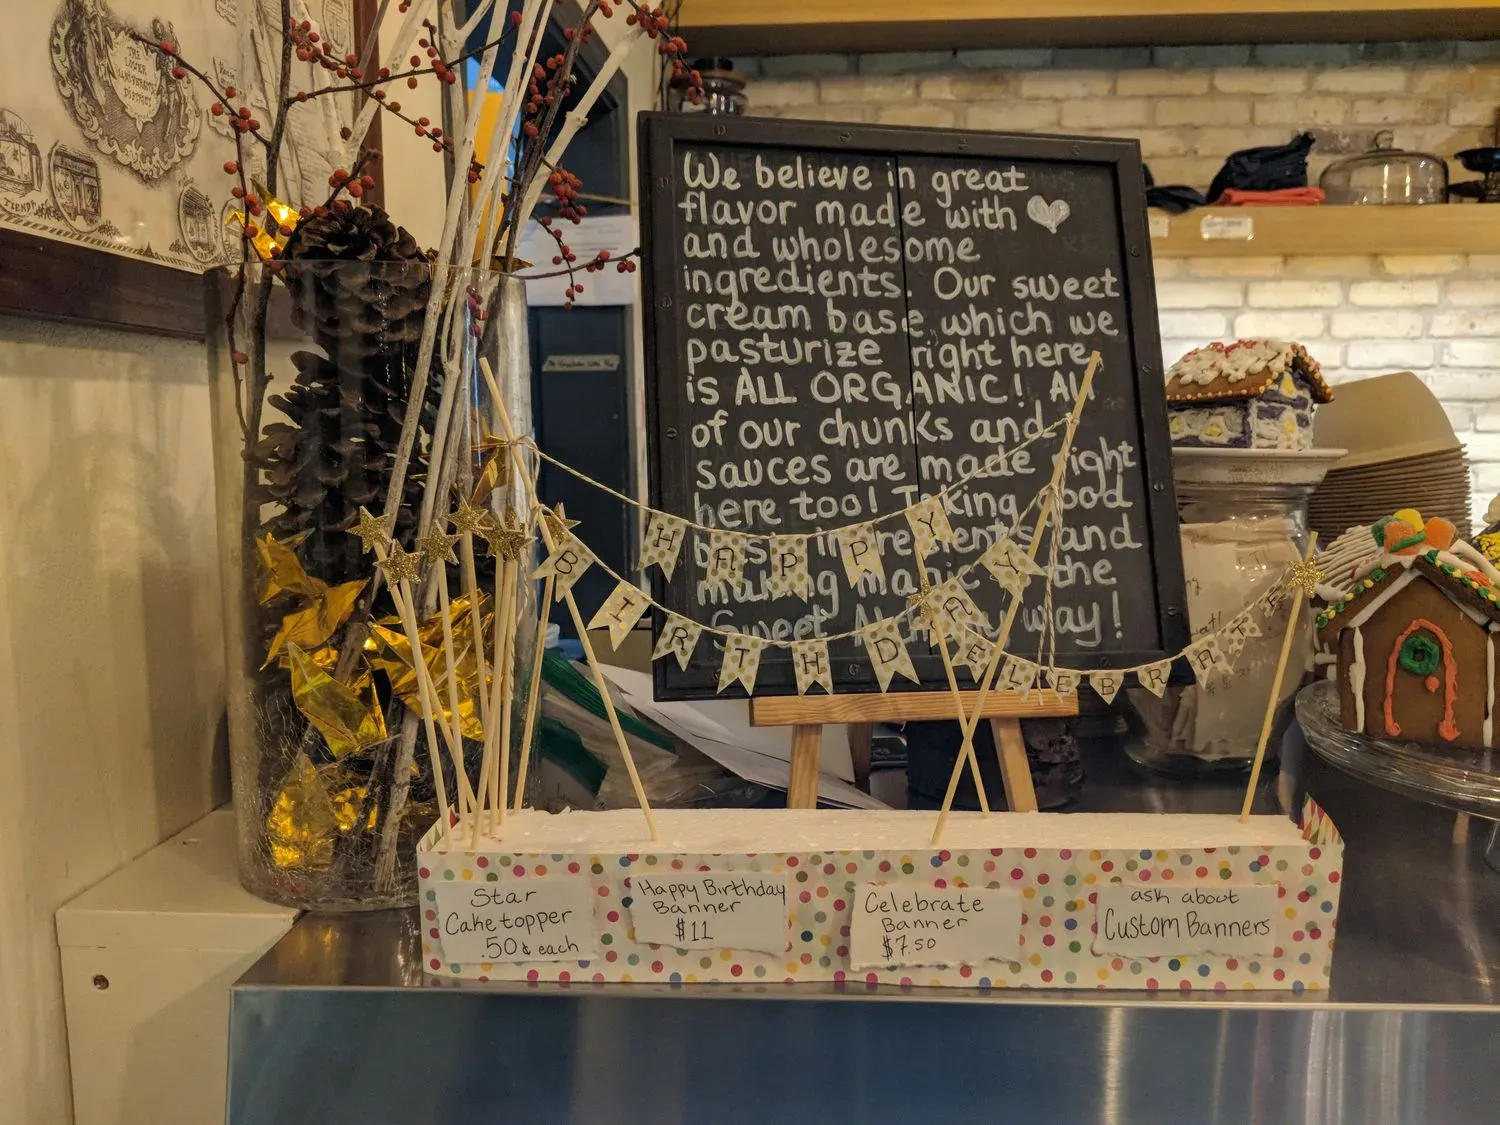 We believe in great
flavor made with
and wholesome
ingredients. Our sweet
cream base, which we
pasturize right here
is ALL ORGANIC! All
of our chunks and
sauces are made right
here too! Taking good
basic ingredients and
making magic the
Sweet Alchemy way!
HAPPY
BIRTHDAY
CELEBRATE
Star
Caketopper
.50¢ each
Happy Birthday
Banner
$11
Celebrate
Banner
$7.50
ask about
Custom Banners